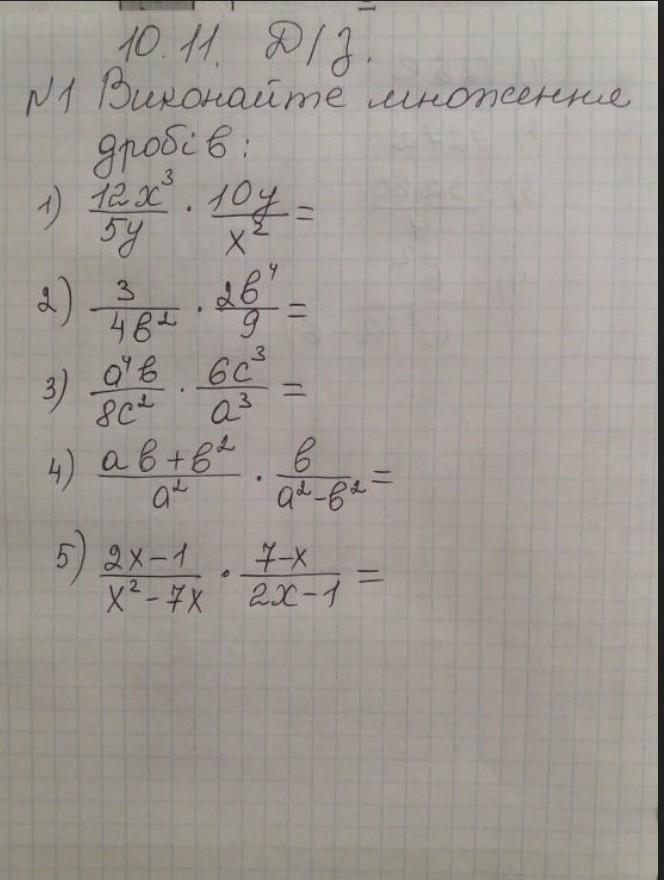 10.11. Д/з.
№1 Виконайте множення
дробів:
1) 12x³/5y · 10y/x² =
2) 3/4b² · 2b⁴/9 =
3) a⁴b/8c² · 6c³/a³ =
4) ab+b²/a² · b/a²-b² =
5) 2x-1/x²-7x · 7-x/2x-1 =